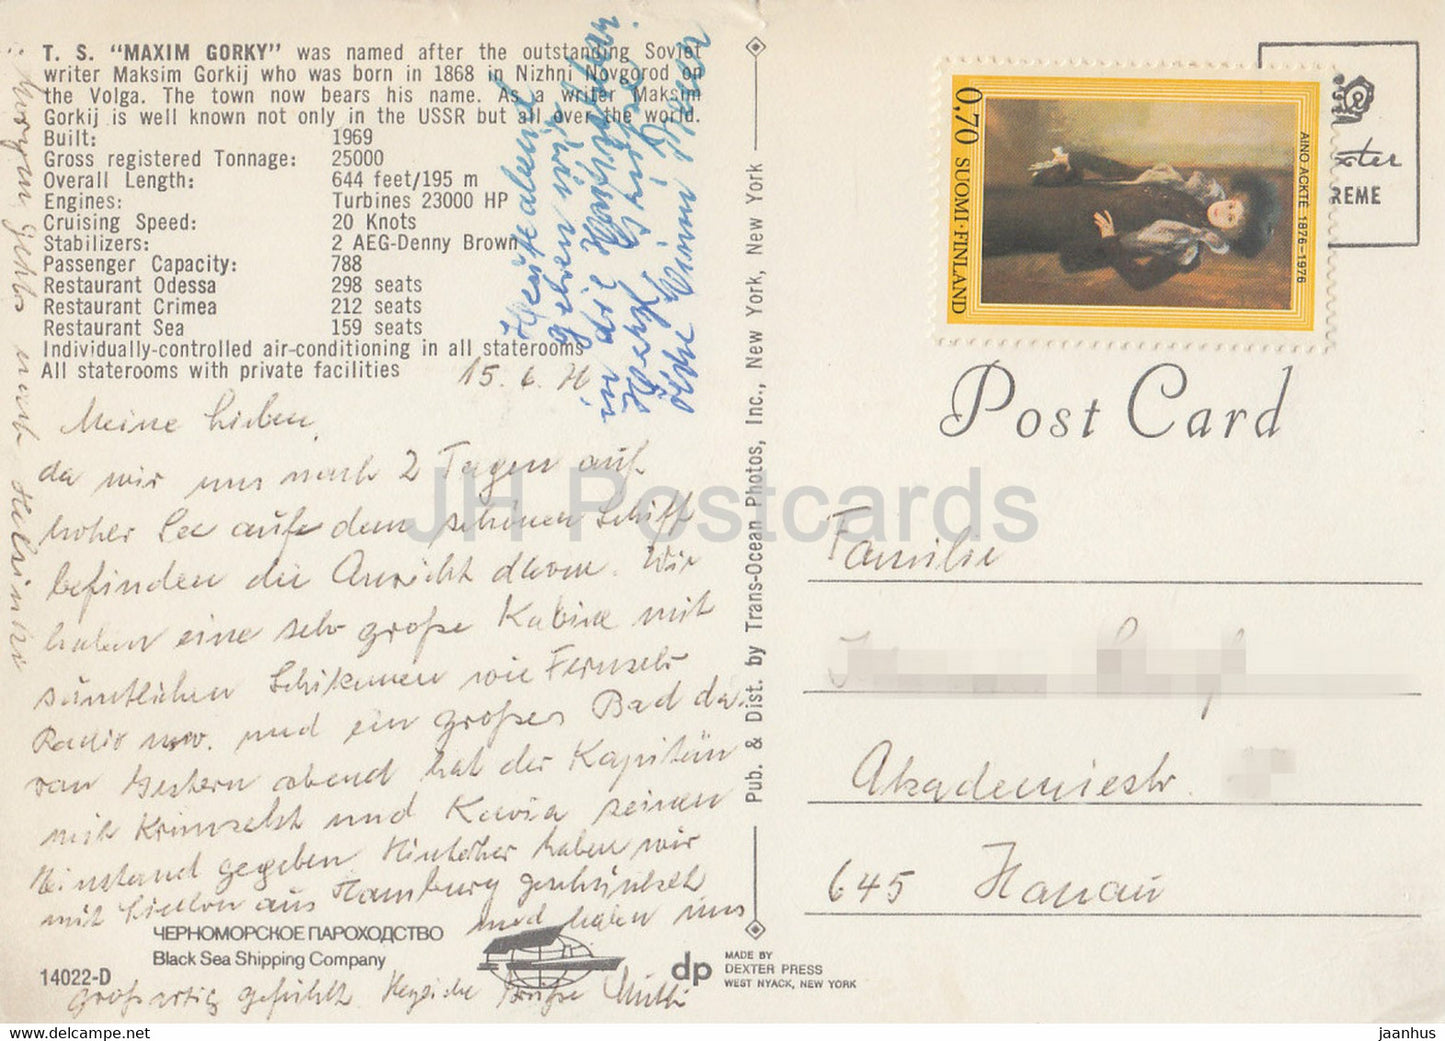 T. S. "MAXIM GORKY" was named after the outstanding Soviet
writer Maksim Gorkij who was born in 1868 in Nizhni Novgorod on
the Volga. The town now bears his name. As a writer Maksim
Gorkij is well known not only in the USSR but all over the world.
Built: 1969
Gross registered Tonnage: 25000
Overall Length: 644 feet/195 m
Engines: Turbines 23000 HP
Cruising Speed: 20 Knots
Stabilizers: 2 AEG-Denny Brown
Passenger Capacity: 788
Restaurant Odessa 298 seats
Restaurant Crimea 212 seats
Restaurant Sea 159 seats
Individually-controlled air-conditioning in all staterooms
All staterooms with private facilities
15. 6. 76
Meine Lieben,
da wir uns nach 2 Tagen auf
hoher See auf dem schönen Schiff
befinden die Ansicht davon. Wir
haben eine sehr große Kabine mit
sämtlichen Schikanen wie Fernseh
Radio usw. und ein großes Bad da
ran Gestern abend hat der Kapitän
mit Krimsekt und Kavia seinen
Einstand gegeben Hinterher haben wir
mit Leuten aus Hamburg
und haben uns
großartig gefühlt. Herzliche Grüße Mutti
Morgen geht's nach Helsinki
Heute abend
gehen wir
in die
Herzl. Grüße
Eure
ЧЕРНОМОРСКОЕ ПАРОХОДСТВО
Black Sea Shipping Company
14022-D
dp MADE BY
DEXTER PRESS
WEST NYACK, NEW YORK
Pub. & Dist. by Trans-Ocean Photos, Inc., New York, New York
0,70 SUOMI·FINLAND
AINO ACKTÉ 1876–1976
xter
REME
Post Card
Familie
Akademiestr.
645 Hanau
JH Postcards
jaanhus